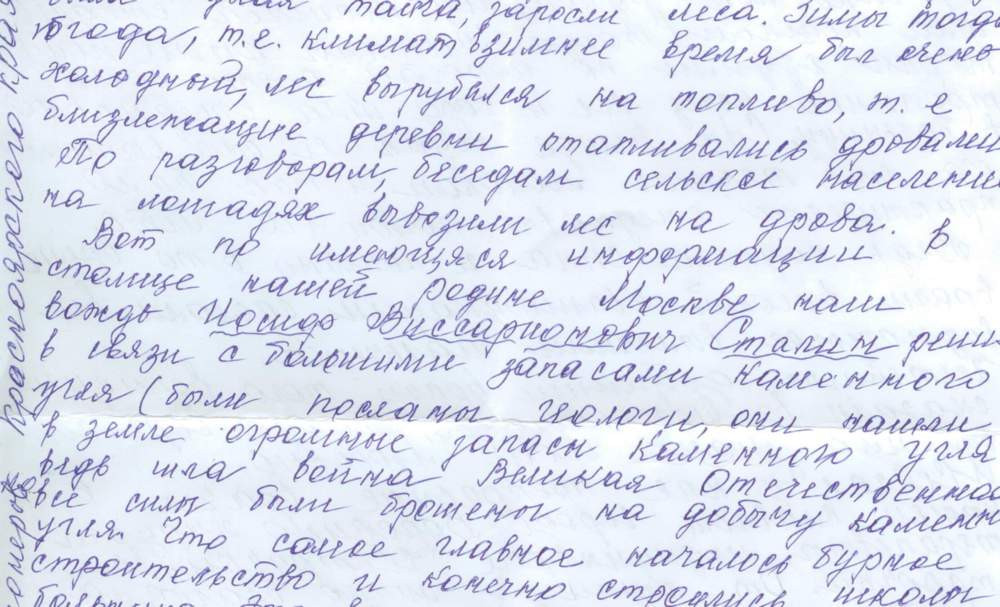 тайга, заросли леса. Зимы тогда
погода, т.е. климат в зимнее время был очень
холодный, лес вырубался на топливо, т. е.
близлежащие деревни отапливались дровами
По разговорам, беседам сельское население
на лошадях вывозили лес на дрова.
Вот по имеющяеся информации в
столице нашей родине Москве наш
вождь Иосиф Виссарионович Сталин реши
в связи с большими запасами каменного
угля (были посланы геологи, они нашли
в земле огромные запасы каменного угля
ведь шла война Великая Отечественная
все силы были брошены на добычу каменн
угля. Что самое главное началось бурное
строительство и конечно строились школы
Красноярского края